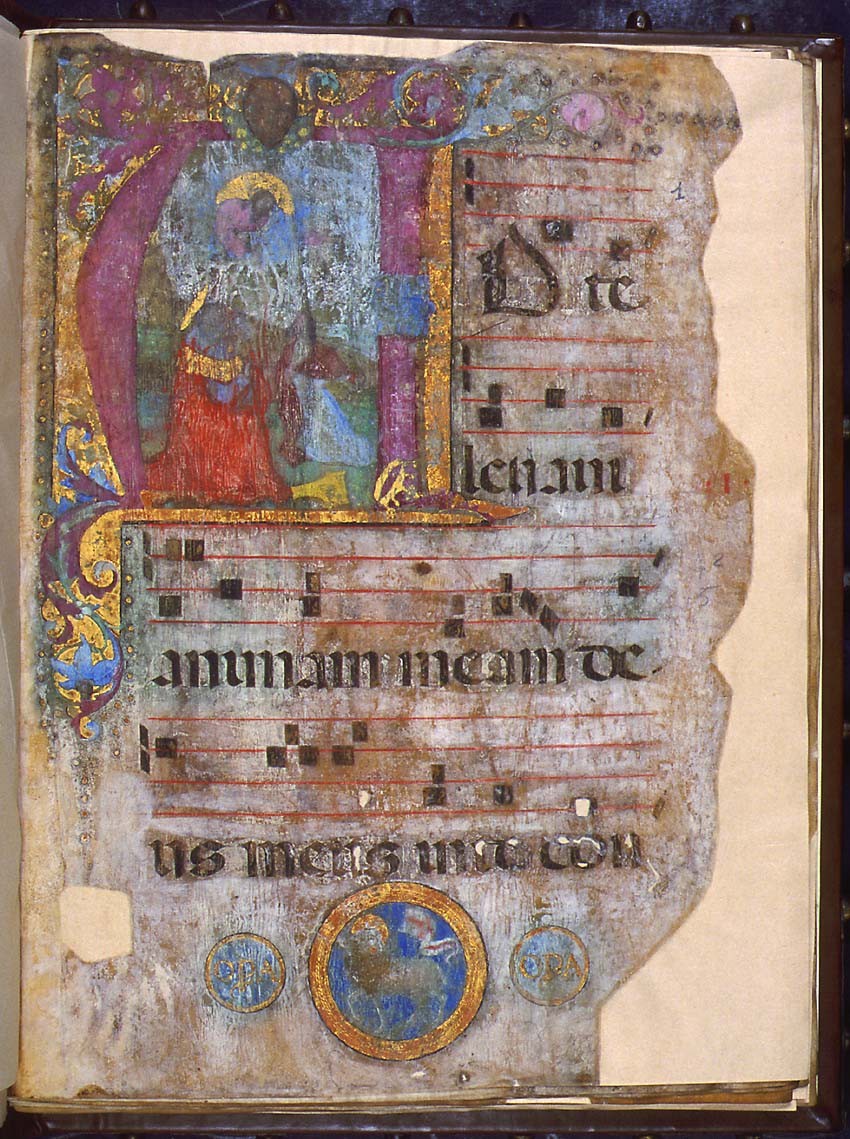 AD te
leuaui
animam meam de
us meus in te con
OPA OPA
1